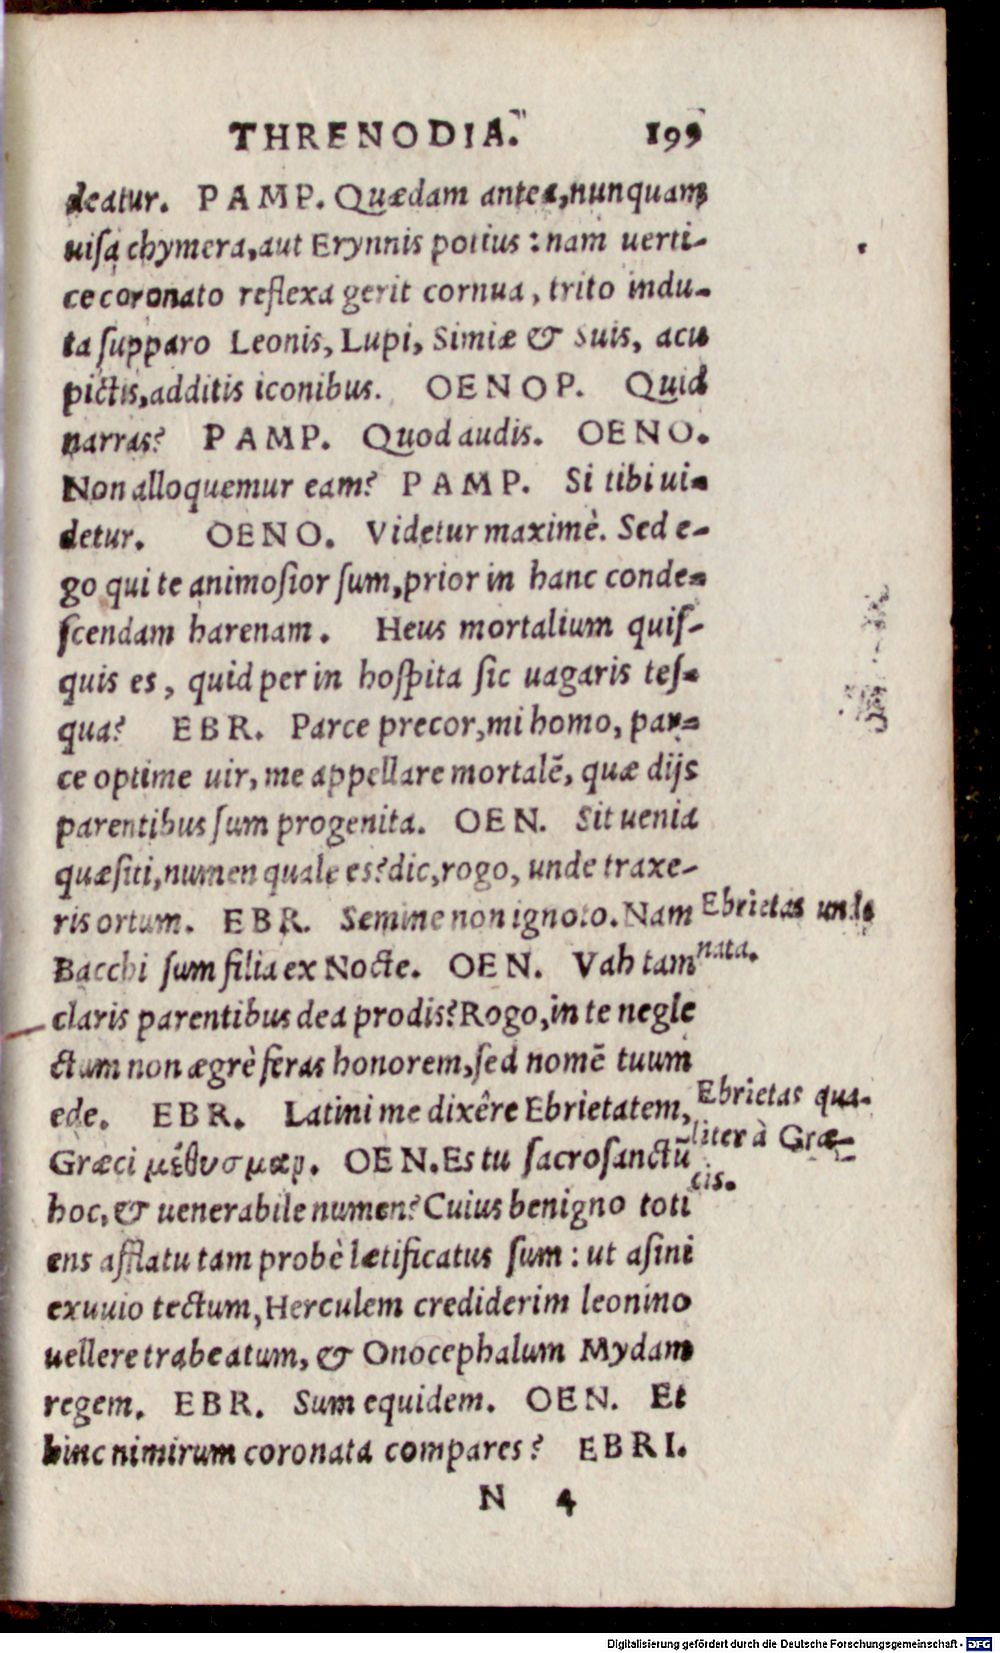 THRENODIA. 199
deatur. PAMP. Quædam antea, nunquam
uisa chymera, aut Erynnis potius: nam uerti-
ce coronato reflexa gerit cornua, trito indu-
ta supparo Leonis, Lupi, Simiæ & Suis, acu
pictis, additis iconibus. OENOP. Quid
narras? PAMP. Quod audis. OENO.
Non alloquemur eam? PAMP. Si tibi ui-
detur. OENO. Videtur maximè. Sed e-
go qui te animosior sum, prior in hanc conde-
scendam harenam. Heus mortalium quis-
quis es, quid per in hospita sic uagaris tes-
qua? EBR. Parce precor, mi homo, par-
ce optime uir, me appellare mortalē, quæ dijs
parentibus sum progenita. OEN. Sit uenia
quæsiti, numen quale es? dic, rogo, unde traxe-
ris ortum. EBR. Semine non ignoto. Nam
Ebrietas unde
nata.
Bacchi sum filia ex Nocte. OEN. Vah tam
claris parentibus dea prodis? Rogo, in te negle
ctum non ægrè feras honorem, sed nomē tuum
ede. EBR. Latini me dixêre Ebrietatem,
Ebrietas qua-
liter à Græ-
cis.
Græci OEN. Es tu sacrosanctū
hoc, & uenerabile numen? Cuius benigno toti
ens afflatu tam probè lætificatus sum: ut asini
exuuio tectum, Herculem crediderim leonino
uellere trabeatum, & Onocephalum Mydam
regem. EBR. Sum equidem. OEN. Et
hinc nimirum coronata compares? EBRI.
N 4
Digitalisierung gefördert durch die Deutsche Forschungsgemeinschaft - DFG